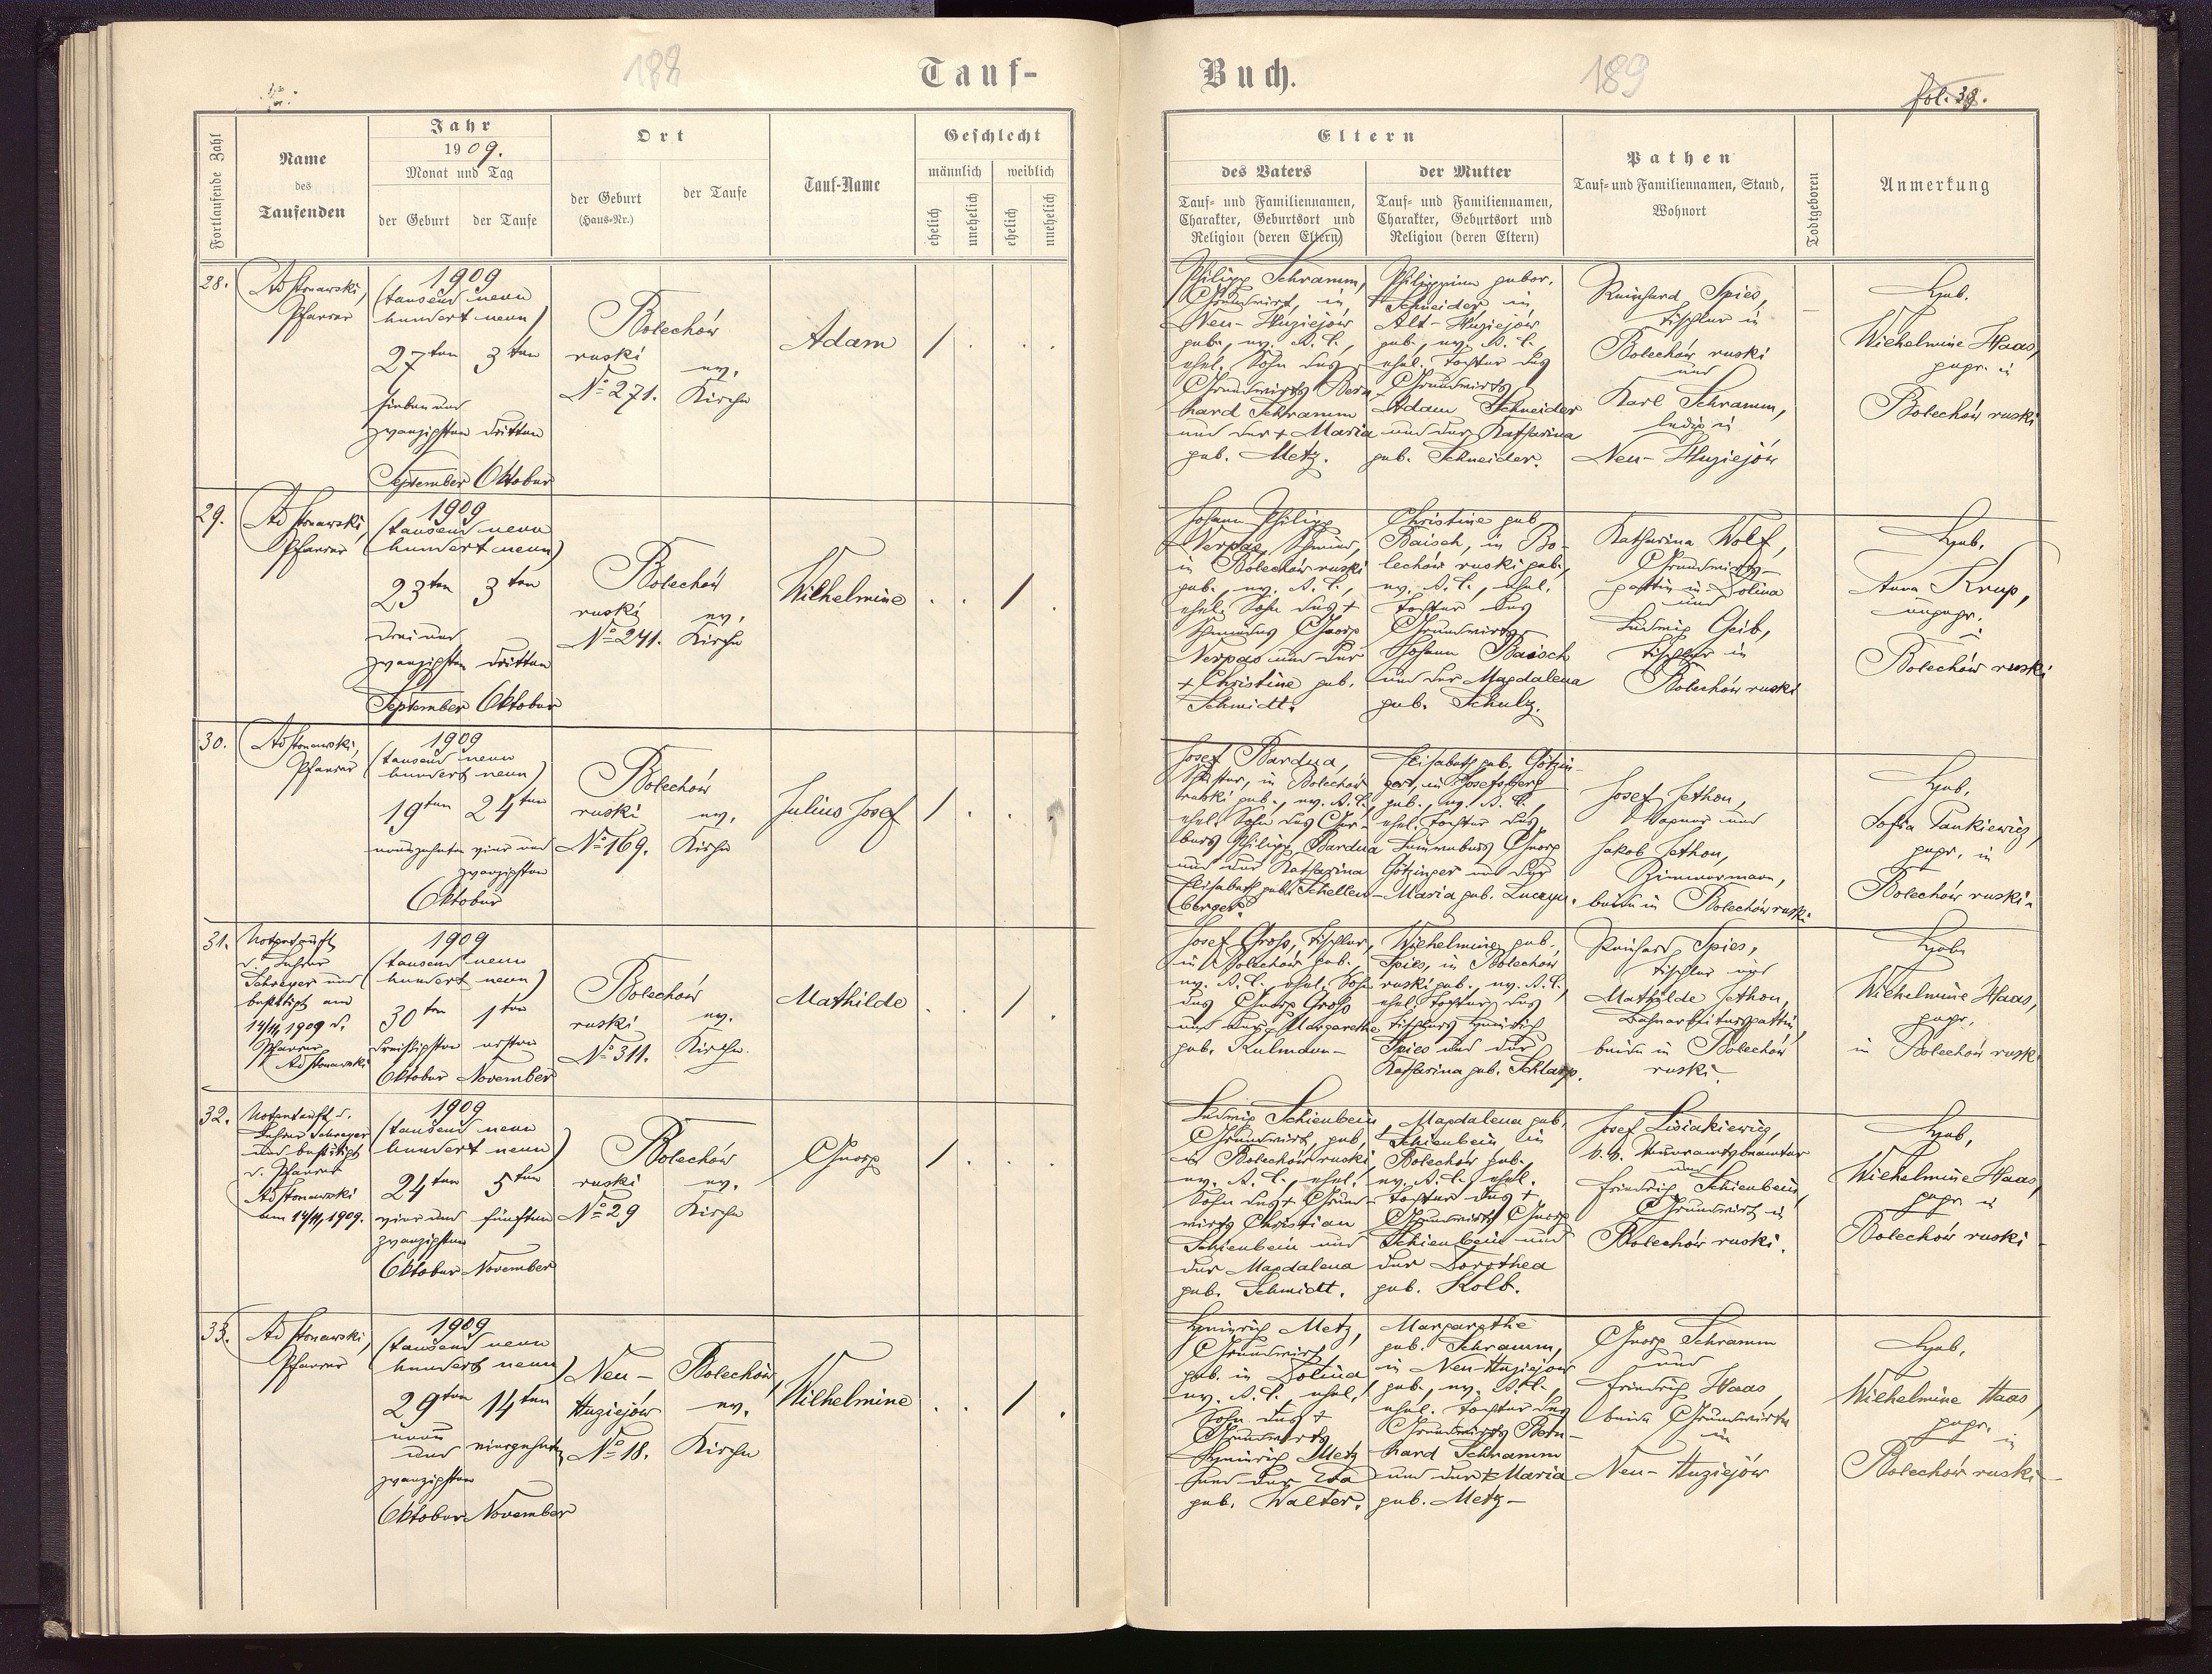 188
Tauf-
Fortlaufende Zahl
Name
des
Taufenden
Jahr
1909.
Monat und Tag
der Geburt
der Taufe
Ort
der Geburt
(Haus-Nr.)
der Taufe
Tauf-Name
Geschlecht
männlich
weiblich
ehelich
unehelich
ehelich
unehelich
28.
Pfarrer
1909
(tausend neun
hundert neun)
27ten 3ten
sieben und
zwanzigsten dritten
September Oktober
Bolechów
ruski ev.
No 271. Kirche
Adam
/ . . .
29.
Pfarrer
1909
(tausend neun
hundert neun)
23ten 3ten
drei und
zwanzigsten dritten
September Oktober
Bolechów
ruski ev.
No 241. Kirche
Wilhelmine
. . / .
30.
Pfarrer
1909
(tausend neun
hundert neun)
19ten 24ten
neunzehnten vier und
zwanzigsten
Oktober
Bolechów
ruski ev.
No 169. Kirche
Julius Josef
/ . . .
31.
Notgetauft
d. Lehrer
Schreyer und
bestätigt am
14/11 1909 d.
Pfarrer
1909
(tausend neun
hundert neun)
30ten 1ten
dreißigsten ersten
Oktober November
Bolechów
ruski ev.
No 311. Kirche.
Mathilde
. . / .
32.
Notgetauft d.
Lehrer Schreyer
und bestätigt
d. Pfarrer
am 14/11, 1909.
1909
(tausend neun
hundert neun)
24ten 5ten
vier und fünften
zwanzigsten
Oktober November
Bolechów
ruski ev.
No 29 Kirche
Georg
/ . . .
33.
Pfarrer
1909
(tausend neun
hundert neun)
29ten 14ten
neun
und vierzehnten
zwanzigsten
Oktober November
Neu- Bolechów,
Huziejów ev.
No 18. Kirche
Wilhelmine
. . / .
Buch.
189
fol. 38.
Eltern
des Vaters
Tauf- und Familiennamen,
Charakter, Geburtsort und
Religion (deren Eltern)
der Mutter
Tauf- und Familiennamen,
Charakter, Geburtsort und
Religion (deren Eltern)
Pathen
Tauf- und Familiennamen, Stand,
Wohnort
Todtgeboren
Anmerkung
Philipp Schramm,
Grundwirt, in
Neu-Huziejów
geb., ev. A. C.,
ehel. Sohn des
Grundwirts Bern-
hard Schramm
und der + Maria
geb. Metz.
Philippine gebor.
Schneider, in
Alt-Huziejów
geb., ev. A. C.,
ehel. Tochter des
Grundwirts
Adam Schneider
und der Katharina
geb. Schneider.
Reinhard Spies,
Tischler in
Bolechów ruski
und
Karl Schramm,
ledig in
Neu-Huziejów
–
Heb.
Wilhelmine Haas,
gepr. in
Bolechów ruski
Johann Philipp
Nerpas, Schmied,
in Bolechów ruski
geb., ev. A. C.,
ehel. Sohn des +
Schmiedes Georg
Nerpas und der
+ Christine geb.
Schmidt.
Christine geb
Baisch, in Bo-
lechów ruski geb.,
ev. A. C., ehel.
Tochter des
Grundwirts
Johann Baisch
und der Magdalena
geb. Schulz.
Katharina Wolf,
Grundwirts-
gattin in Dolina
und
Ludwig Geib,
Tischler in
Bolechów ruski
Heb.
Anna Krup,
ungepr.
in
Bolechów ruski
Josef Bardua,
Schuster, in Bolechów
ruski geb., ev. A. C.,
ehel. Sohn des Ger-
bers Philipp Bardua
und der Katharina
Elisabeth geb. Schellen-
berger
Elisabeth geb. Götzin-
ger, in Josefsberg
geb., ev. A. C.,
ehel. Tochter des
Georg
Götzinger und der
Maria geb.
Josef Jethon,
Wagner und
Jakob Jethon,
Zimmermann,
beide in Bolechów ruski
Heb.
Sofia Pankiewicz,
gepr. in
Bolechów ruski.
Josef Groß, Tischler,
in Bolechów geb.
ev. A. C., ehel. Sohn
des Georg Groß
und der Margarethe
geb. Kulmann-
Wilhelmine geb.
Spies, in Bolechów
ruski geb., ev. A. C.,
ehel. Tochter des
Tischlers Heinrich
Spies und der
Katharina geb. Schlarp.
Reinhard Spies,
Tischler und
Mathilde Jethon,
Bahnarbeitersgattin,
beide in Bolechów
ruski.
Heb.
Wilhelmine Haas,
gepr.
in Bolechów ruski
Ludwig Schienbein,
Grundwirt, geb.
in Bolechów ruski,
ev. A. C., ehel.
Sohn des + Grund-
wirts Christian
Schienbein und
der Magdalena
geb. Schmidt.
Magdalena geb.
Schienbein in
Bolechów geb.,
ev. A. C. ehel.
Tochter des +
Grundwirts Georg
Schienbein und
der Dorothea
geb. Kolb.
Josef Lisiakiewicz,
k. k. Steueramtsbeamter
und
Friedrich Schienbein,
Grundwirt in
Bolechów ruski.
Heb.
Wilhelmine Haas,
gepr. in
Bolechów ruski
Heinrich Metz,
Grundwirt
geb. in Dolina
ev. A. C. ehel.
Sohn des +
Grundwirts
Heinrich Metz
und der Eva
geb. Walter.
Margarethe
geb. Schramm,
in Neu-Huziejów
geb., ev. A. C.,
ehel. Tochter des
Grundwirts Bern-
hard Schramm
und der + Maria
geb. Metz-
Georg Schramm
und
Friedrich Haas,
beide Grundwirte
in
Neu-Huziejów
Heb.
Wilhelmine Haas,
gepr. in
Bolechów ruski-